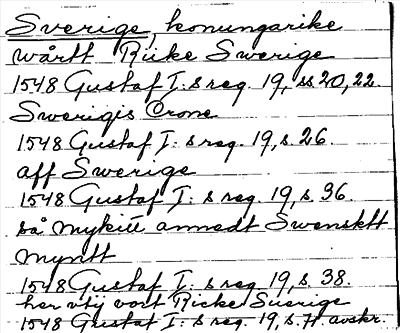 Sverige, konungarike
wårtt Riike Swerige
1548 Gustaf I:s reg. 19, ss 20, 22.
Swerigis Crone
1548 Gustaf I:s reg. 19, s. 26.
aff Swerige
1548 Gustaf I:s reg. 19, s. 36.
så mykitt annedt Swensktt
myntt
1548 Gustaf I:s reg. 19, s. 38.
her vtij vort Ricke Suerige
1548 Gustaf I:s reg. 19, s. 71. avskr.